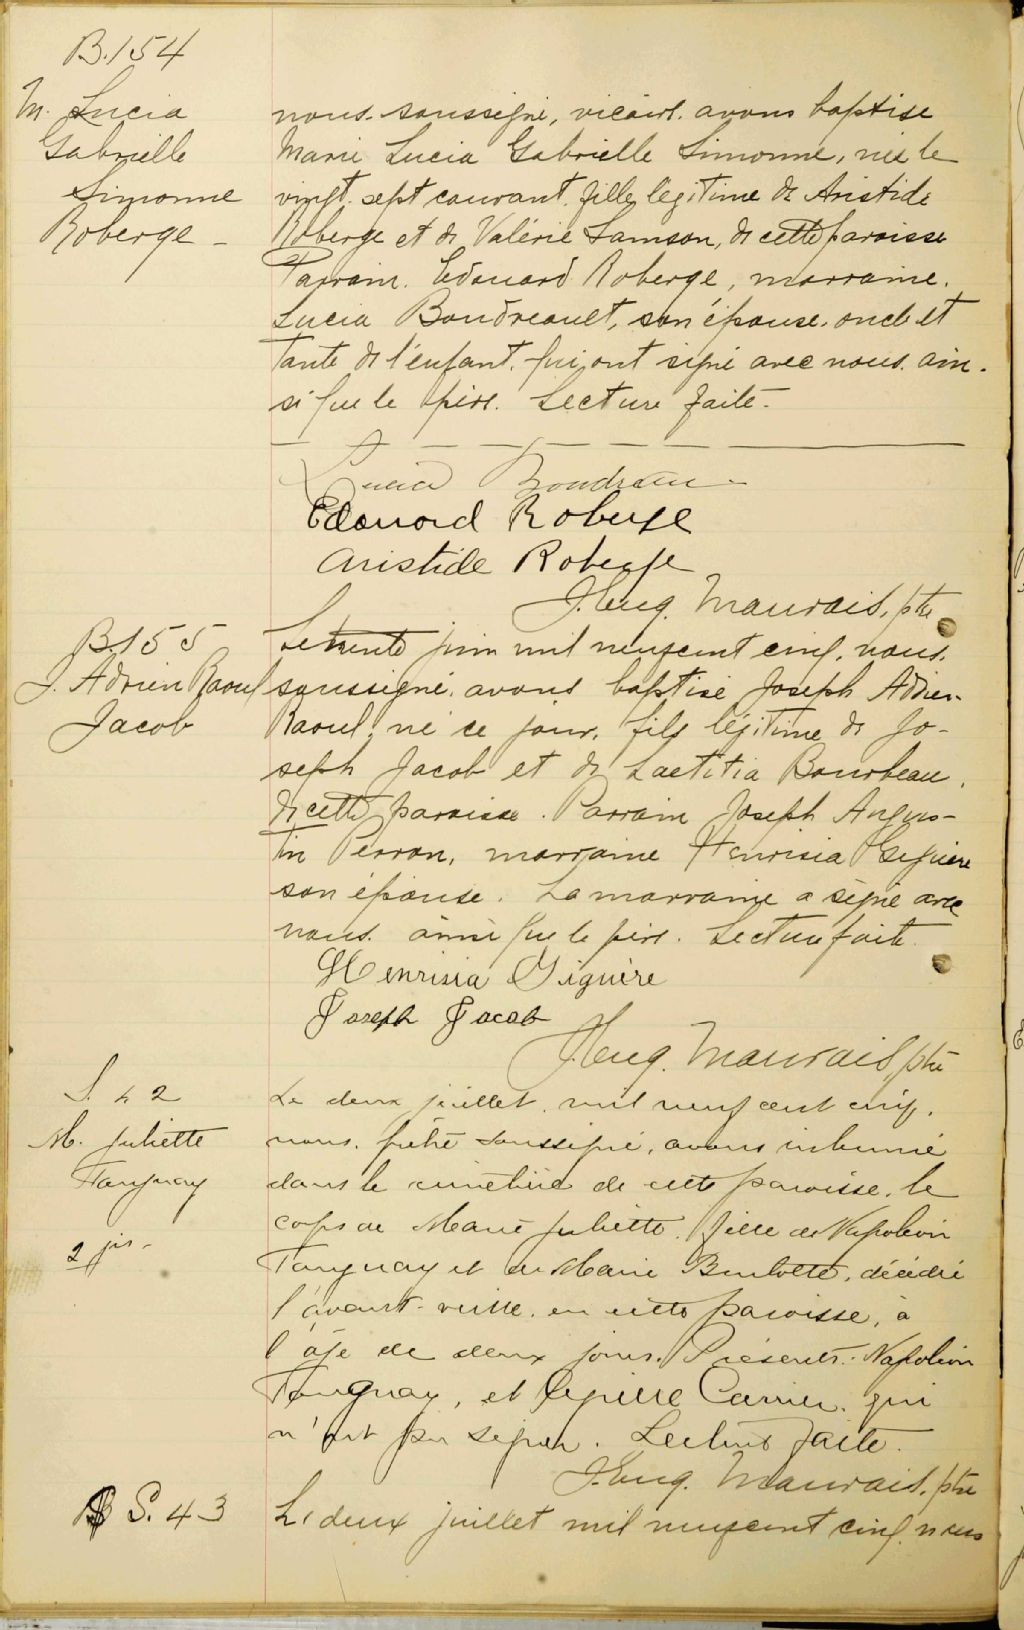 B.154
M. Lucia
Gabrielle
Simonne
Roberge -
nous soussigné, vicaire, avons baptisé
Marie Lucia Gabrielle Simonne, née le
vingt-sept courant, fille légitime de Aristide
Roberge et de Valérie Samson, de cette paroisse
Parrain Edouard Roberge, marraine
Lucia Boudreault, son épouse, oncle et
tante de l'enfant, qui ont signé avec nous ain-
si que le père. Lecture faite.
Lucia Boudreau
Edouard Roberge
Aristide Roberge
J. Eug. Mauvais, ptre
B.155
J. Adrien Raoul
Jacob
Le trente juin mil neuf cent cinq, nous,
soussigné, avons baptisé Joseph Adrien
Raoul, né ce jour, fils légitime de Jo-
seph Jacob et de Laetitia Bourbeau,
de cette paroisse. Parrain Joseph Augus-
tin Perron, marraine Henrisia Giguère
son épouse. La marraine a signé avec
nous ainsi que le père. Lecture faite.
Henrisia Giguère
Joseph Jacob
J. Eug. Mauvais, ptre
S. 42
M. Juliette
Tanguay
2 jrs -
Le deux juillet mil neuf cent cinq,
nous, prêtre soussigné, avons inhumé
dans le cimetière de cette paroisse, le
corps de Marie Juliette, fille de Napoléon
Tanguay et de Marie, décédée
l'avant-veille en cette paroisse, à
l'âge de deux jours. Présents: Napoléon
Tanguay, et Carrier, qui
n'ont pu signer. Lecture faite.
J. Eug. Mauvais, ptre
S. 43
Le deux juillet mil neuf cent cinq, nous